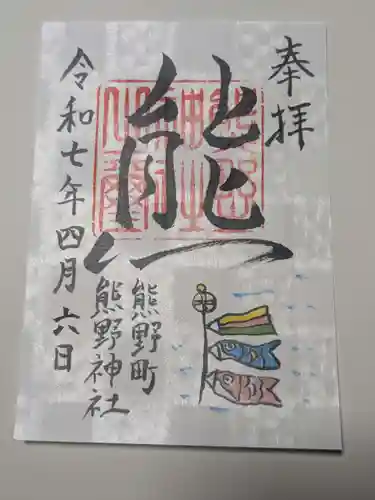 奉拝
熊
熊野町
熊野神社
令和七年四月六日